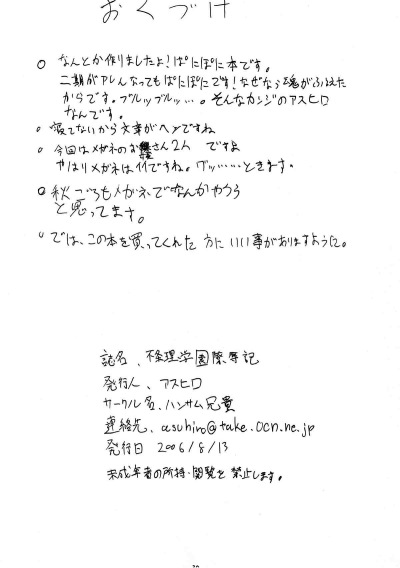 おくづけ
○ なんとか作りましたよ！ぱにぽに本です。
二期がアレんなってもぱにぽにです！なぜなら魂がふるえた
からです。ブルッブルッ…。そんなカンジのアスヒロ
なんです。
○ 寝てないから文章がヘンですね
○ 今回はメガネのお さん2人 ですよ
やはりメガネは ですね。グッ……ときます。
○ 秋ごろもメガネでなんかやろう
と思ってます。
○ では、この本を買ってくれた方にいい事がありますように。
誌名、不条理学園 辱記
発行人、アスヒロ
サークル名、ハンサム兄貴
連絡先、asuhiro@take.ocn.ne.jp
発行日 2006/8/13
未成年者の所持・閲覧を禁止します。